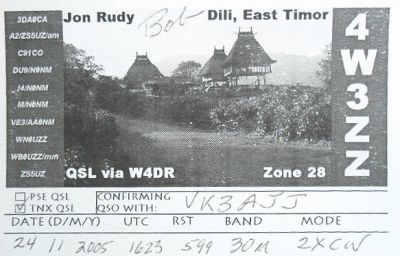 Jon Rudy Bob Dili, East Timor
3DA0CA
A2/ZS5UZ/am
C91CO
DU9/N0NM
J4/N0NM
M/N0NM
VE3/AA0NM
WN0UZZ
WB0UZZ/mm
ZS5UZ
4W3ZZ
QSL via W4DR Zone 28
PSE QSL
TNX QSL
CONFIRMING
QSO WITH: VK3AJJ
DATE (D/M/Y) UTC RST BAND MODE
24 11 2005 1623 599 30M 2XCW